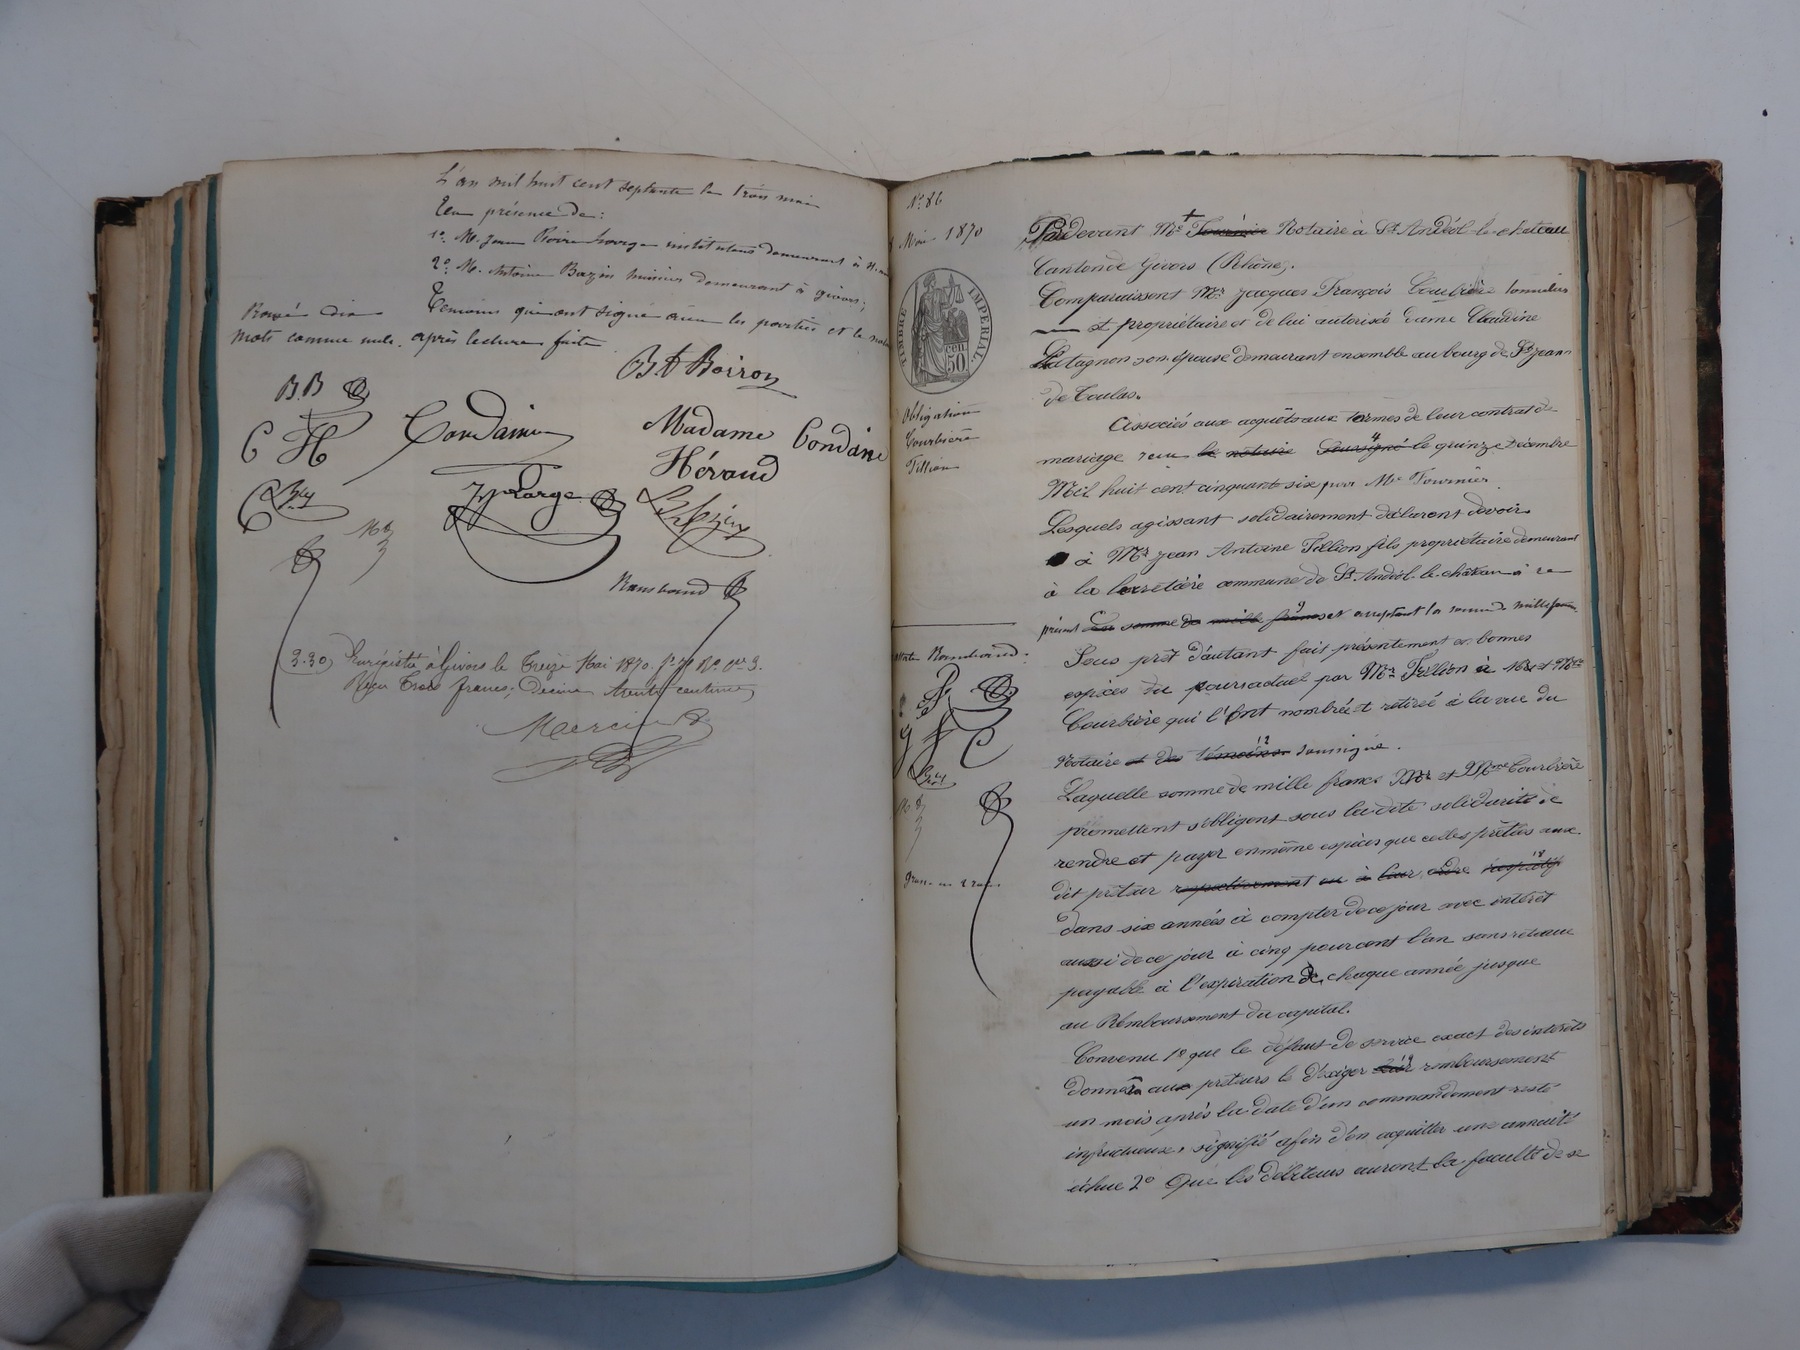 L'an mil huit cent septante le trois mai
En présence de :
1o. M. Jean Pierre instituteur demeurant à
2o. M. Antoine Bazin mineur demeurant à givors ;
Témoins qui ont signé avec les parties et le
Rayé dix
mots comme nuls. après lecture faite
Bt Boiron
B.B
C H
Condamin
Madame Condamin
Héraud
JJ Large
Rambaud
3.30 Enregistré à Givors le treize Mai 1870. fo 71 Ro. Cse 3.
Reçu trois francs, décime trente centimes
Mercier
No. 86
Mai 1870
TIMBRE IMPÉRIAL
50 cen
Obligation
Courbière
Tillion
Rambaud
Grosse en 2 rôles
Pardevant Me Fournier Notaire à St. Andéol-le-château
Canton de Givors (Rhône).
Comparaissent Mr. Jacques François Courbière
et propriétaire et de lui autorisée dame Claudine
Chatagnon son épouse demeurant ensemble au bourg de St Jean
de Toulas.
Associés aux acquêts aux termes de leur contrat de
mariage reçu le notaire soussigné le quinze décembre
Mil huit cent cinquante six par Me Fournier.
Lesquels agissant solidairement déclarent devoir
à Mr. Jean Antoine Tillion fils propriétaire demeurant
à la commune de St. Andéol-le-château à ce
présent La somme de mille francs et acceptant la somme de mille francs
Sous prêt d'autant fait présentement en bonnes
espèces du cours actuel par Mr. Tillion à Mr et Mme
Courbière qui l'ont nombrée et retirée à la vue du
Notaire et des témoins soussigné.
Laquelle somme de mille francs Mr. et Mme Courbière
promettent s'obligent sous la dite solidarité de
rendre et payer en même espèces que celles prêtées au
dit prêteur respectivement ou à leur ordre
dans six années à compter de ce jour avec intérêt
aussi de ce jour à cinq pour cent l'an sans retenue
payable à l'expiration de chaque année jusque
au Remboursement du capital.
Convenu 1o que le défaut de service exact des intérêts
donnera aux prêteurs le d'exiger remboursement
un mois après la date d'un commandement resté
infructueux, signifié afin d'en acquitter une annuité
échue 2o Que les débiteurs auront la faculté de se